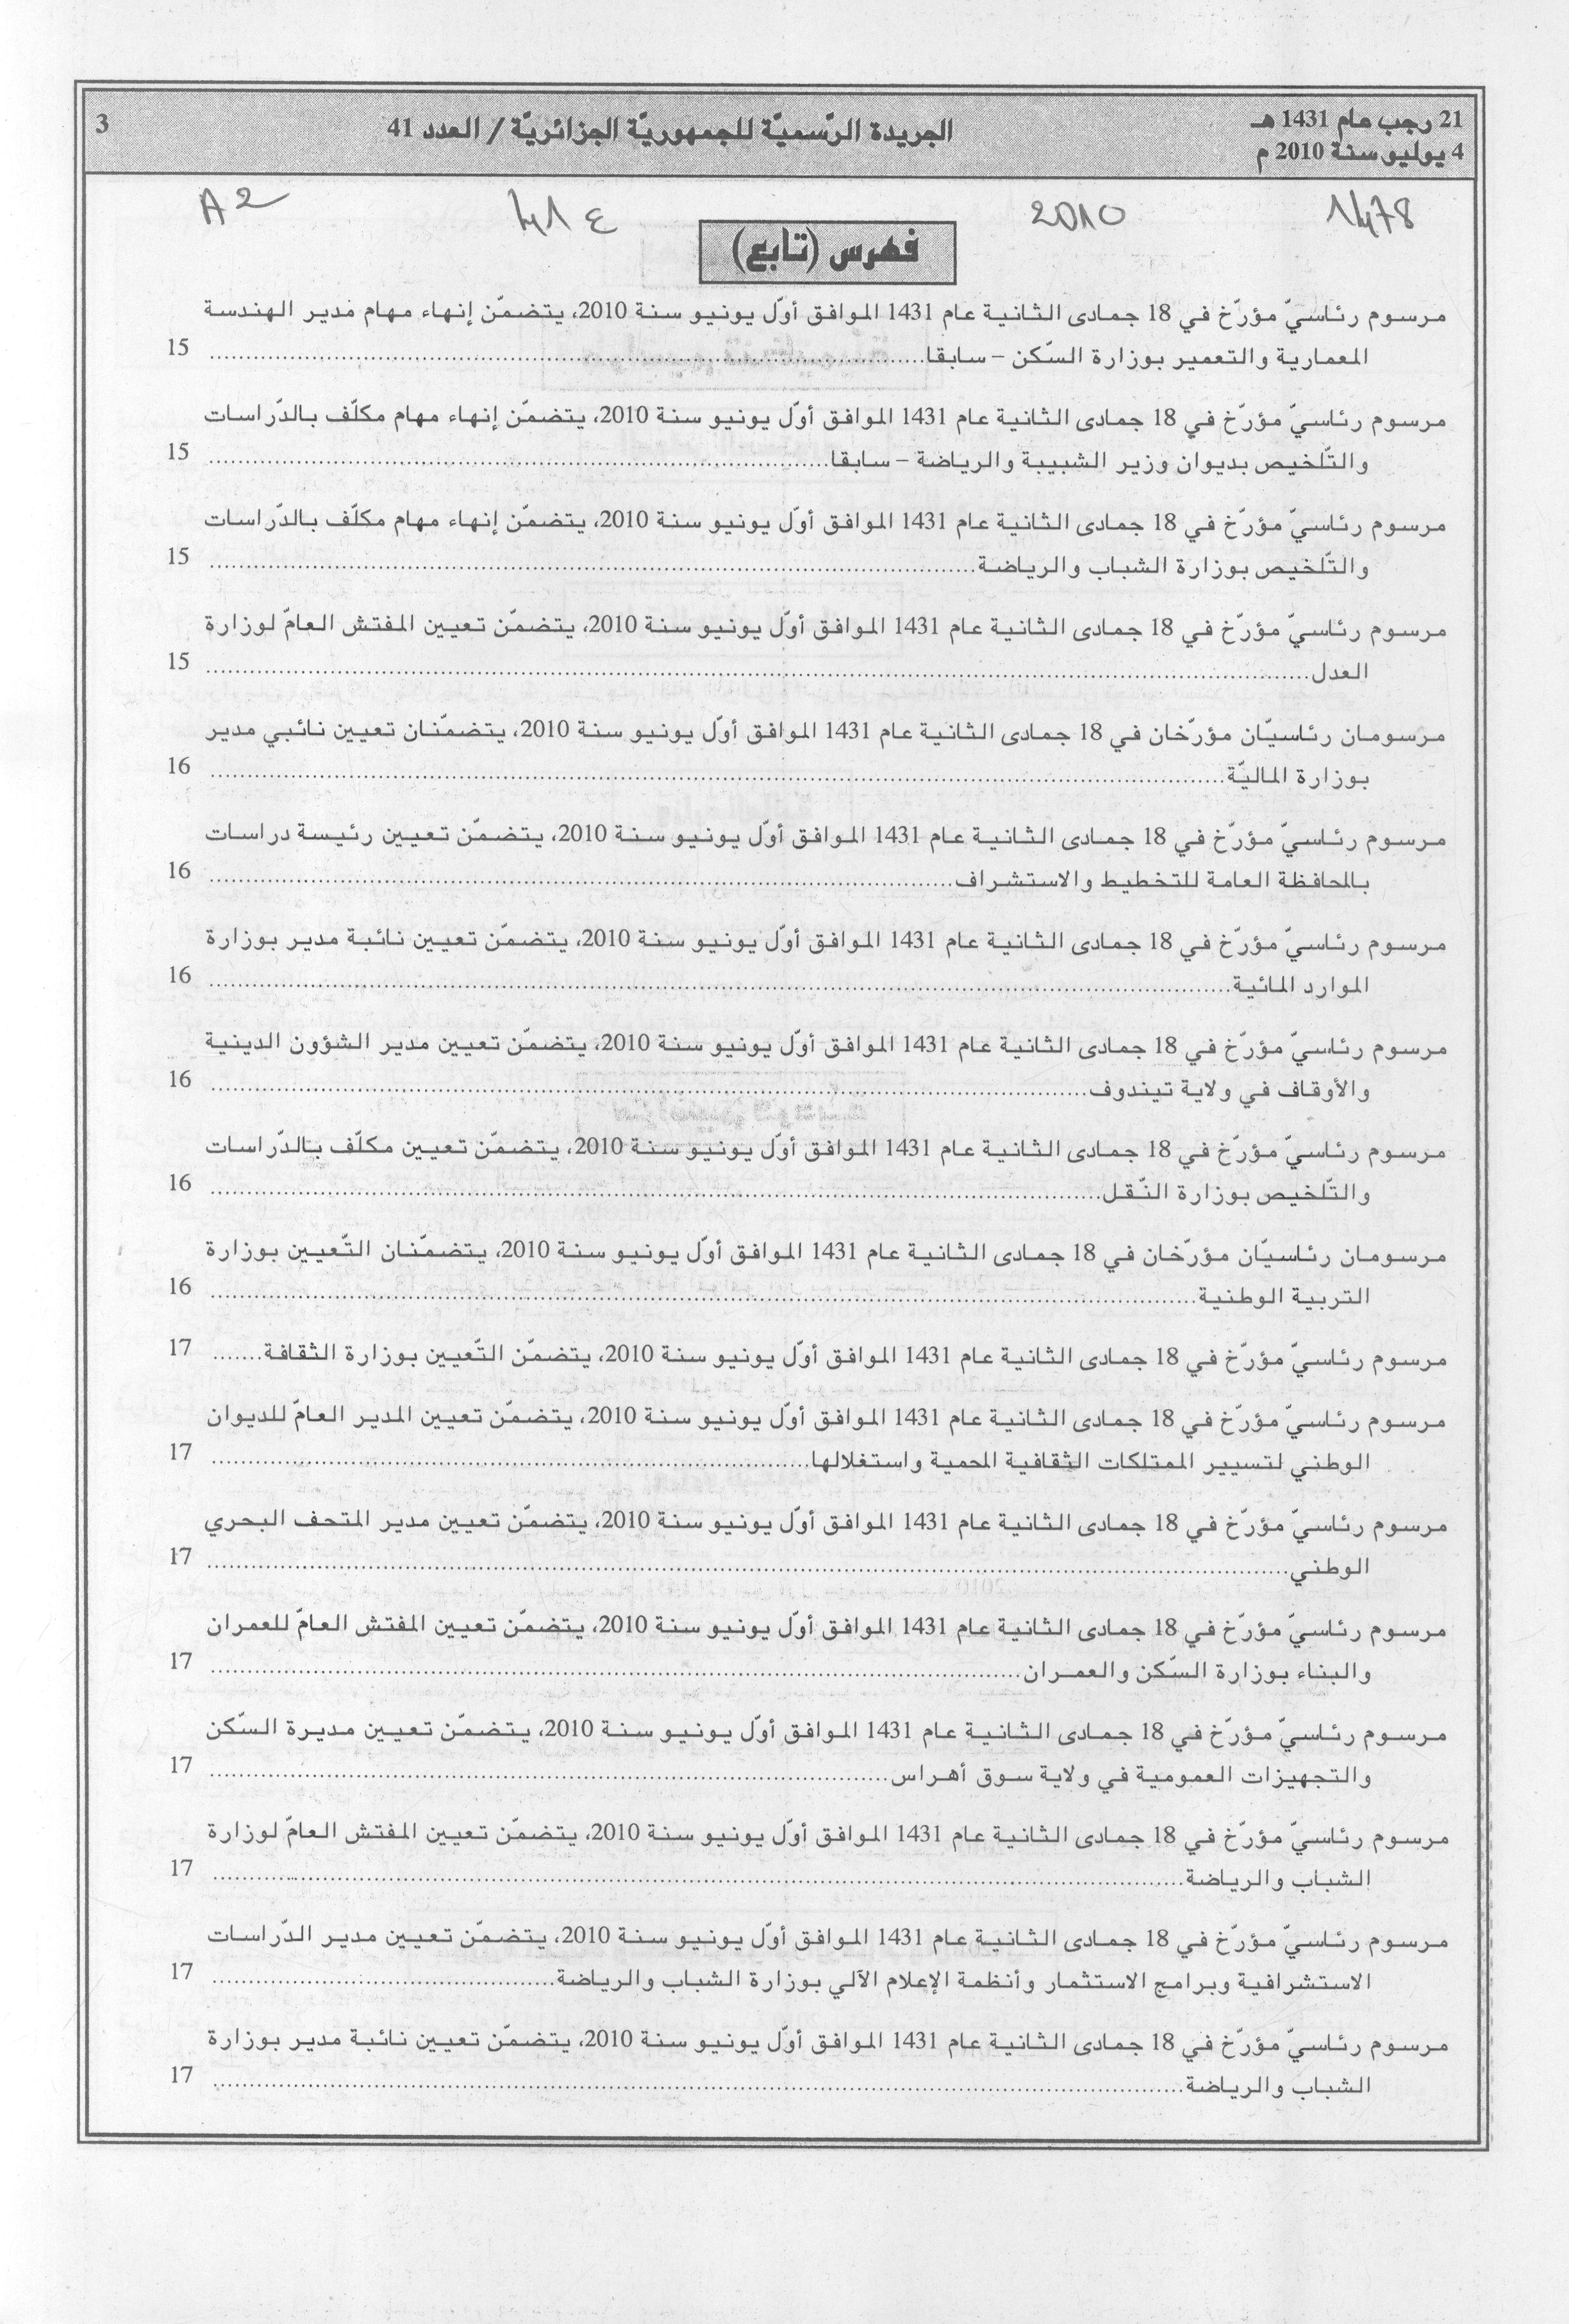 21 رجب عام 1431 هـ
4 يوليو سنة 2010 م
الجريدة الرّسميّة للجمهوريّة الجزائريّة / العدد 41
3
1478 2010 41 ع A2
فهرس (تابع)
مرسوم رئاسيّ مؤرّخ في 18 جمادى الثانية عام 1431 الموافق أوّل يونيو سنة 2010، يتضمّن إنهاء مهام مدير الهندسة
المعمارية والتعمير بوزارة السّكن – سابقا........ 15
مرسوم رئاسيّ مؤرّخ في 18 جمادى الثانية عام 1431 الموافق أوّل يونيو سنة 2010، يتضمّن إنهاء مهام مكلّف بالدّراسات
والتّلخيص بديوان وزير الشبيبة والرياضة – سابقا........ 15
مرسوم رئاسيّ مؤرّخ في 18 جمادى الثانية عام 1431 الموافق أوّل يونيو سنة 2010، يتضمّن إنهاء مهام مكلّف بالدّراسات
والتّلخيص بوزارة الشباب والرياضة........ 15
مرسوم رئاسيّ مؤرّخ في 18 جمادى الثانية عام 1431 الموافق أوّل يونيو سنة 2010، يتضمّن تعيين المفتش العامّ لوزارة
العدل........ 15
مرسومان رئاسيّان مؤرّخان في 18 جمادى الثانية عام 1431 الموافق أوّل يونيو سنة 2010، يتضمّنان تعيين نائبي مدير
بوزارة الماليّة........ 16
مرسوم رئاسيّ مؤرّخ في 18 جمادى الثانية عام 1431 الموافق أوّل يونيو سنة 2010، يتضمّن تعيين رئيسة دراسات
بالمحافظة العامة للتخطيط والاستشراف........ 16
مرسوم رئاسيّ مؤرّخ في 18 جمادى الثانية عام 1431 الموافق أوّل يونيو سنة 2010، يتضمّن تعيين نائبة مدير بوزارة
الموارد المائية........ 16
مرسوم رئاسيّ مؤرّخ في 18 جمادى الثانية عام 1431 الموافق أوّل يونيو سنة 2010، يتضمّن تعيين مدير الشؤون الدينية
والأوقاف في ولاية تيندوف........ 16
مرسوم رئاسيّ مؤرّخ في 18 جمادى الثانية عام 1431 الموافق أوّل يونيو سنة 2010، يتضمّن تعيين مكلّف بالدّراسات
والتّلخيص بوزارة النّقل........ 16
مرسومان رئاسيّان مؤرّخان في 18 جمادى الثانية عام 1431 الموافق أوّل يونيو سنة 2010، يتضمّنان التّعيين بوزارة
التربية الوطنية........ 16
مرسوم رئاسيّ مؤرّخ في 18 جمادى الثانية عام 1431 الموافق أوّل يونيو سنة 2010، يتضمّن التّعيين بوزارة الثقافة....... 17
مرسوم رئاسيّ مؤرّخ في 18 جمادى الثانية عام 1431 الموافق أوّل يونيو سنة 2010، يتضمّن تعيين المدير العامّ للديوان
الوطني لتسيير الممتلكات الثقافية المحمية واستغلالها........ 17
مرسوم رئاسيّ مؤرّخ في 18 جمادى الثانية عام 1431 الموافق أوّل يونيو سنة 2010، يتضمّن تعيين مدير المتحف البحري
الوطني........ 17
مرسوم رئاسيّ مؤرّخ في 18 جمادى الثانية عام 1431 الموافق أوّل يونيو سنة 2010، يتضمّن تعيين المفتش العامّ للعمران
والبناء بوزارة السّكن والعمـران........ 17
مرسوم رئاسيّ مؤرّخ في 18 جمادى الثانية عام 1431 الموافق أوّل يونيو سنة 2010، يتضمّن تعيين مديرة السّكن
والتجهيزات العمومية في ولاية سوق أهراس........ 17
مرسوم رئاسيّ مؤرّخ في 18 جمادى الثانية عام 1431 الموافق أوّل يونيو سنة 2010، يتضمّن تعيين المفتش العامّ لوزارة
الشباب والرياضة........ 17
مرسوم رئاسيّ مؤرّخ في 18 جمادى الثانية عام 1431 الموافق أوّل يونيو سنة 2010، يتضمّن تعيين مدير الدّراسات
الاستشرافية وبرامج الاستثمار وأنظمة الإعلام الآلي بوزارة الشباب والرياضة........ 17
مرسوم رئاسيّ مؤرّخ في 18 جمادى الثانية عام 1431 الموافق أوّل يونيو سنة 2010، يتضمّن تعيين نائبة مدير بوزارة
الشباب والرياضة........ 17